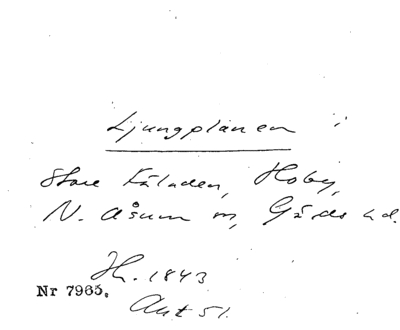 Ljungplanen
Store Fäladen, Hoby,
N. Åsum m, Gärds hd.
Hh. 1843
Nr 7965.
Akt 51.